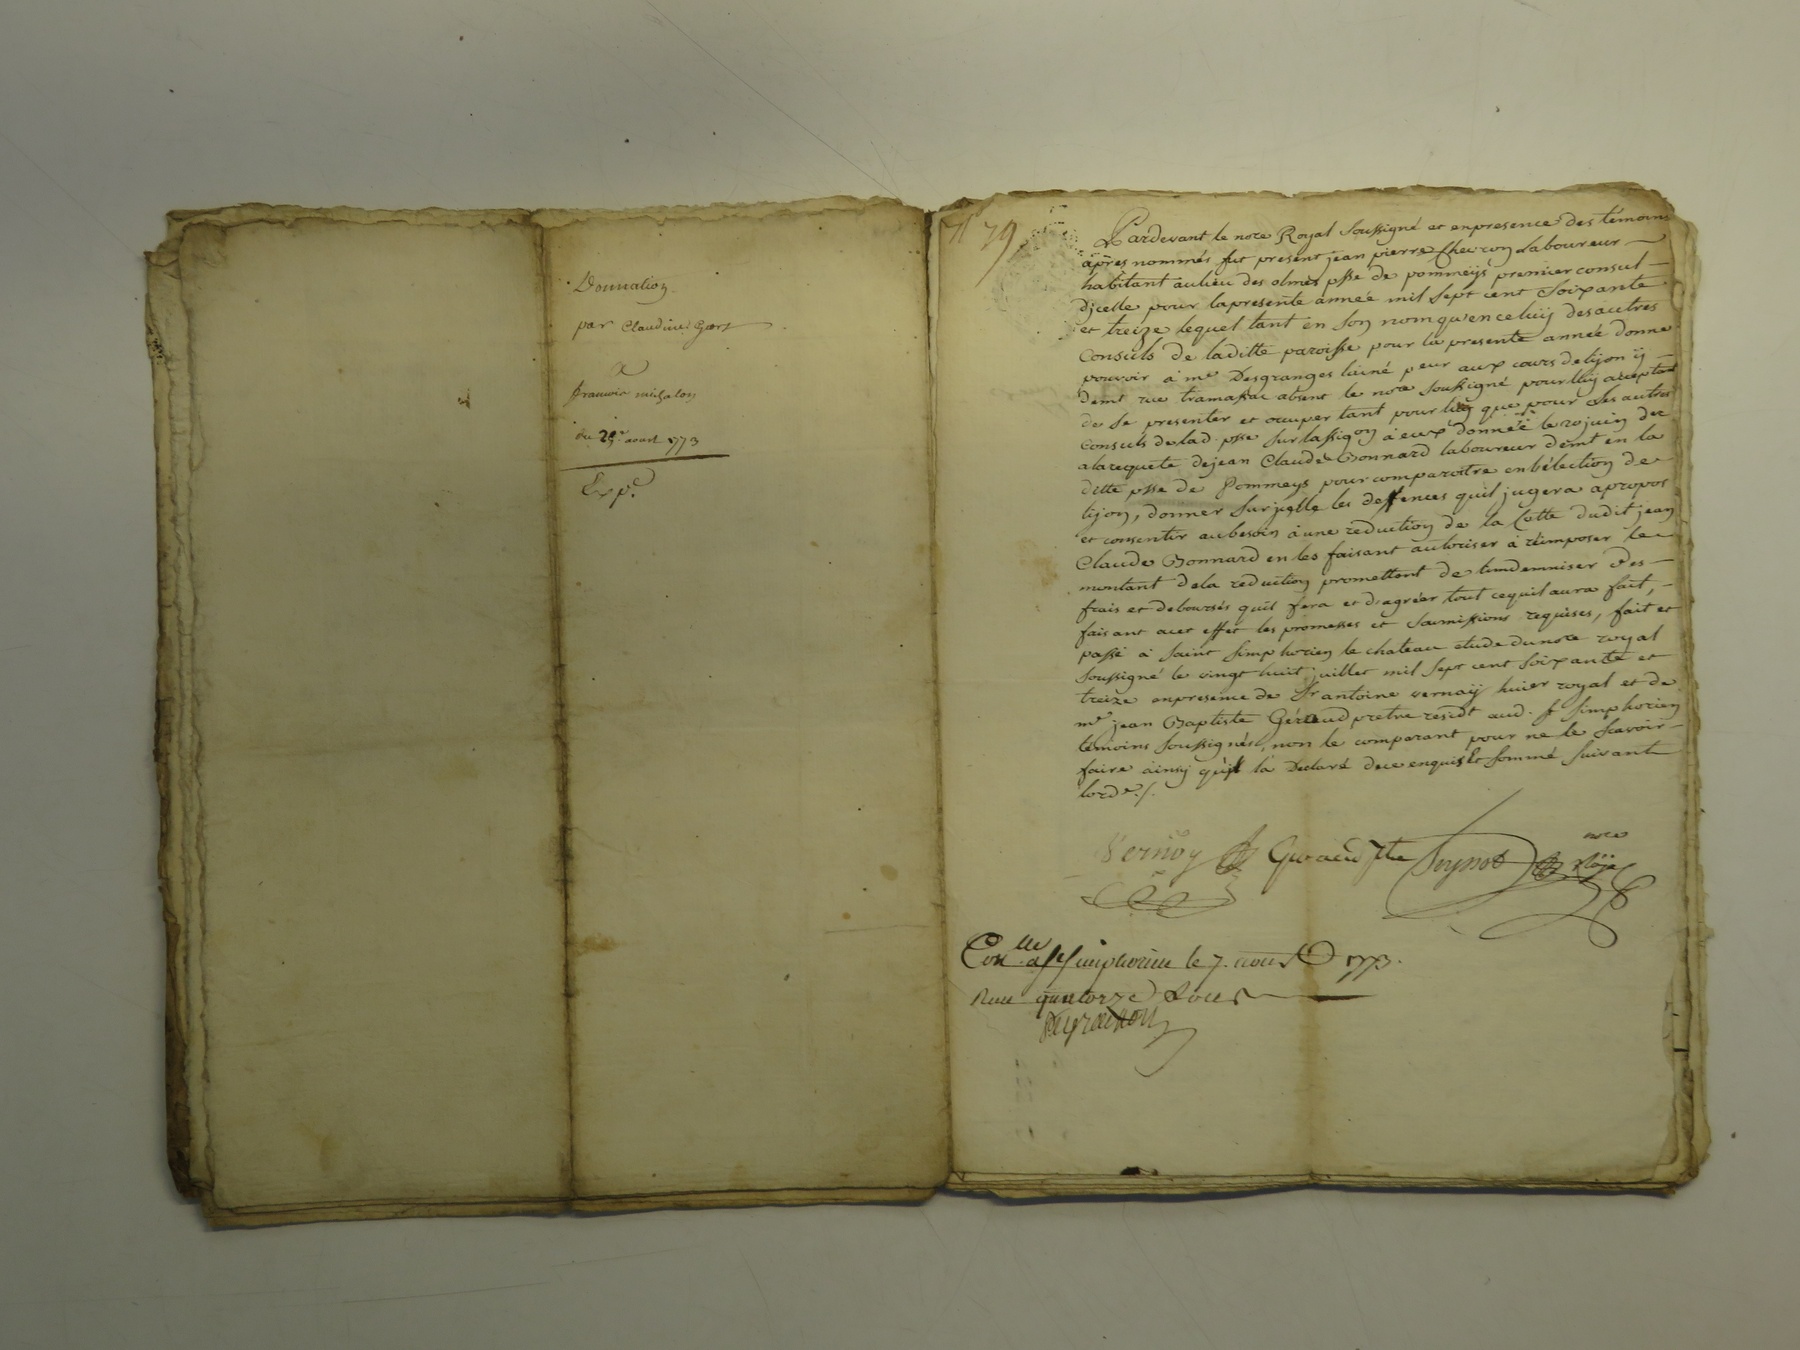 Donnation
par Claudine
a
francois michalon
du 29e. aoust 1773
Expe.
79
Pardevant le nore Royal Soussigné et enpresence des témoins
apres nommés fut present jean pierre Chevron Laboureur
habitant aulieu des olmes psse de pommeys premier consul
djcelle pour lapresente année mil sept cent Soixante
et treize lequel tant en Son nom qu'en celuÿ desautres
Consuls de laditte paroisse pour la presente année donne
pouvoir à me Desgranges lainé pcur aux cours delÿon ÿ
demt rue tramassac absent le nore Soussigné pourluÿ acceptant
de Se presenter et occuper tant pour luÿ que pour Les autres
Consuls delad. psse Sur lassigon à eux donnée le 20 juin der
alarequete dejean Claude Bonnard laboureur demt en la
ditte psse de Pommeys pour comparoitre en lélection de
lÿon, donner Sur jcelle les deffences quil jugera apropos
et consentir aubesoin à une reduction de la Cotte dudit jean
Claude Bonnard en les faisant autoriser à réimposer le
montant dela reduction promettant de lindemniser des
frais et deboursés quil fera et d'agréer tout cequil aura fait,
faisant acet effet les promesses et Soumissions requises, fait et
passé à Saint Simphorien le chateau etude dunore royal
Soussigné le vingt huit juillet mil Sept cent Soixante et
treize enpresence de Sr antoine vernaÿ huier royal et de
me jean Baptiste Géraud pretre residt aud. St Simphorien
témoins Soussignés, non le comparant pour ne le Scavoir
faire ainsy qu'il la Declaré dece enquis et Sommé Suivant
lorde./.
Vernay Giraud ptre nore
Roÿal
Conlle a St Simphorien le 7. aoust 1773.
Recu quatorze Sous